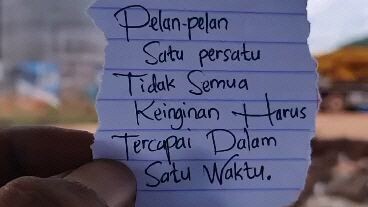 Pelan-pelan
Satu persatu
Tidak Semua
Keinginan Harus
Tercapai Dalam
Satu Waktu.